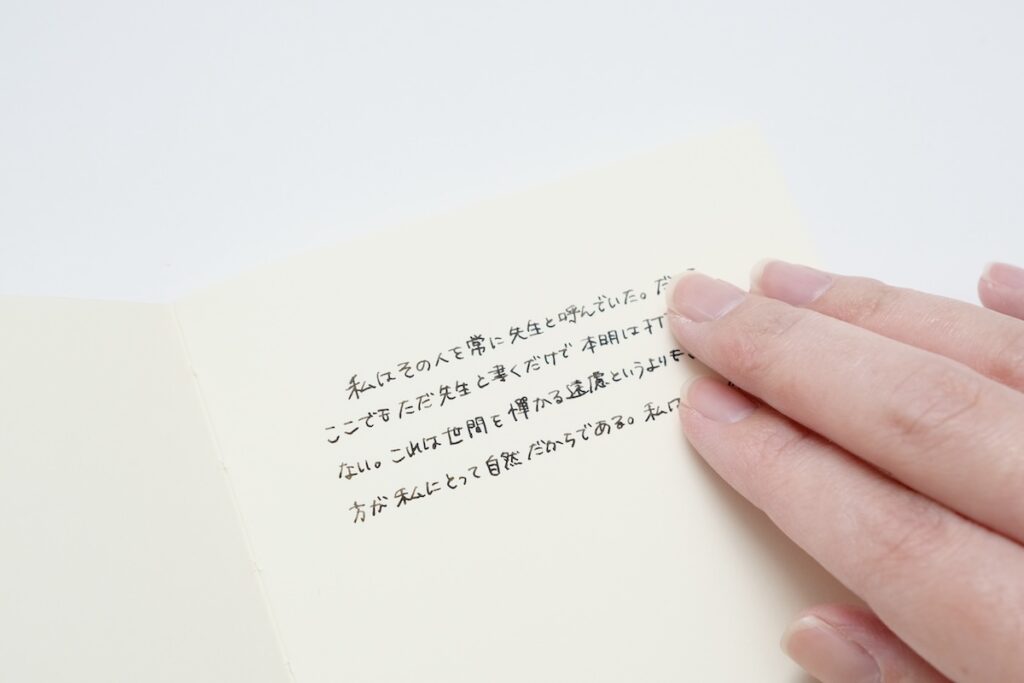 私はその人を常に先生と呼んでいた。だ
ここでもただ先生と書くだけで本明は打
ない。これは世間を憚かる遠慮というよりも
方が私にとって自然だからである。私は